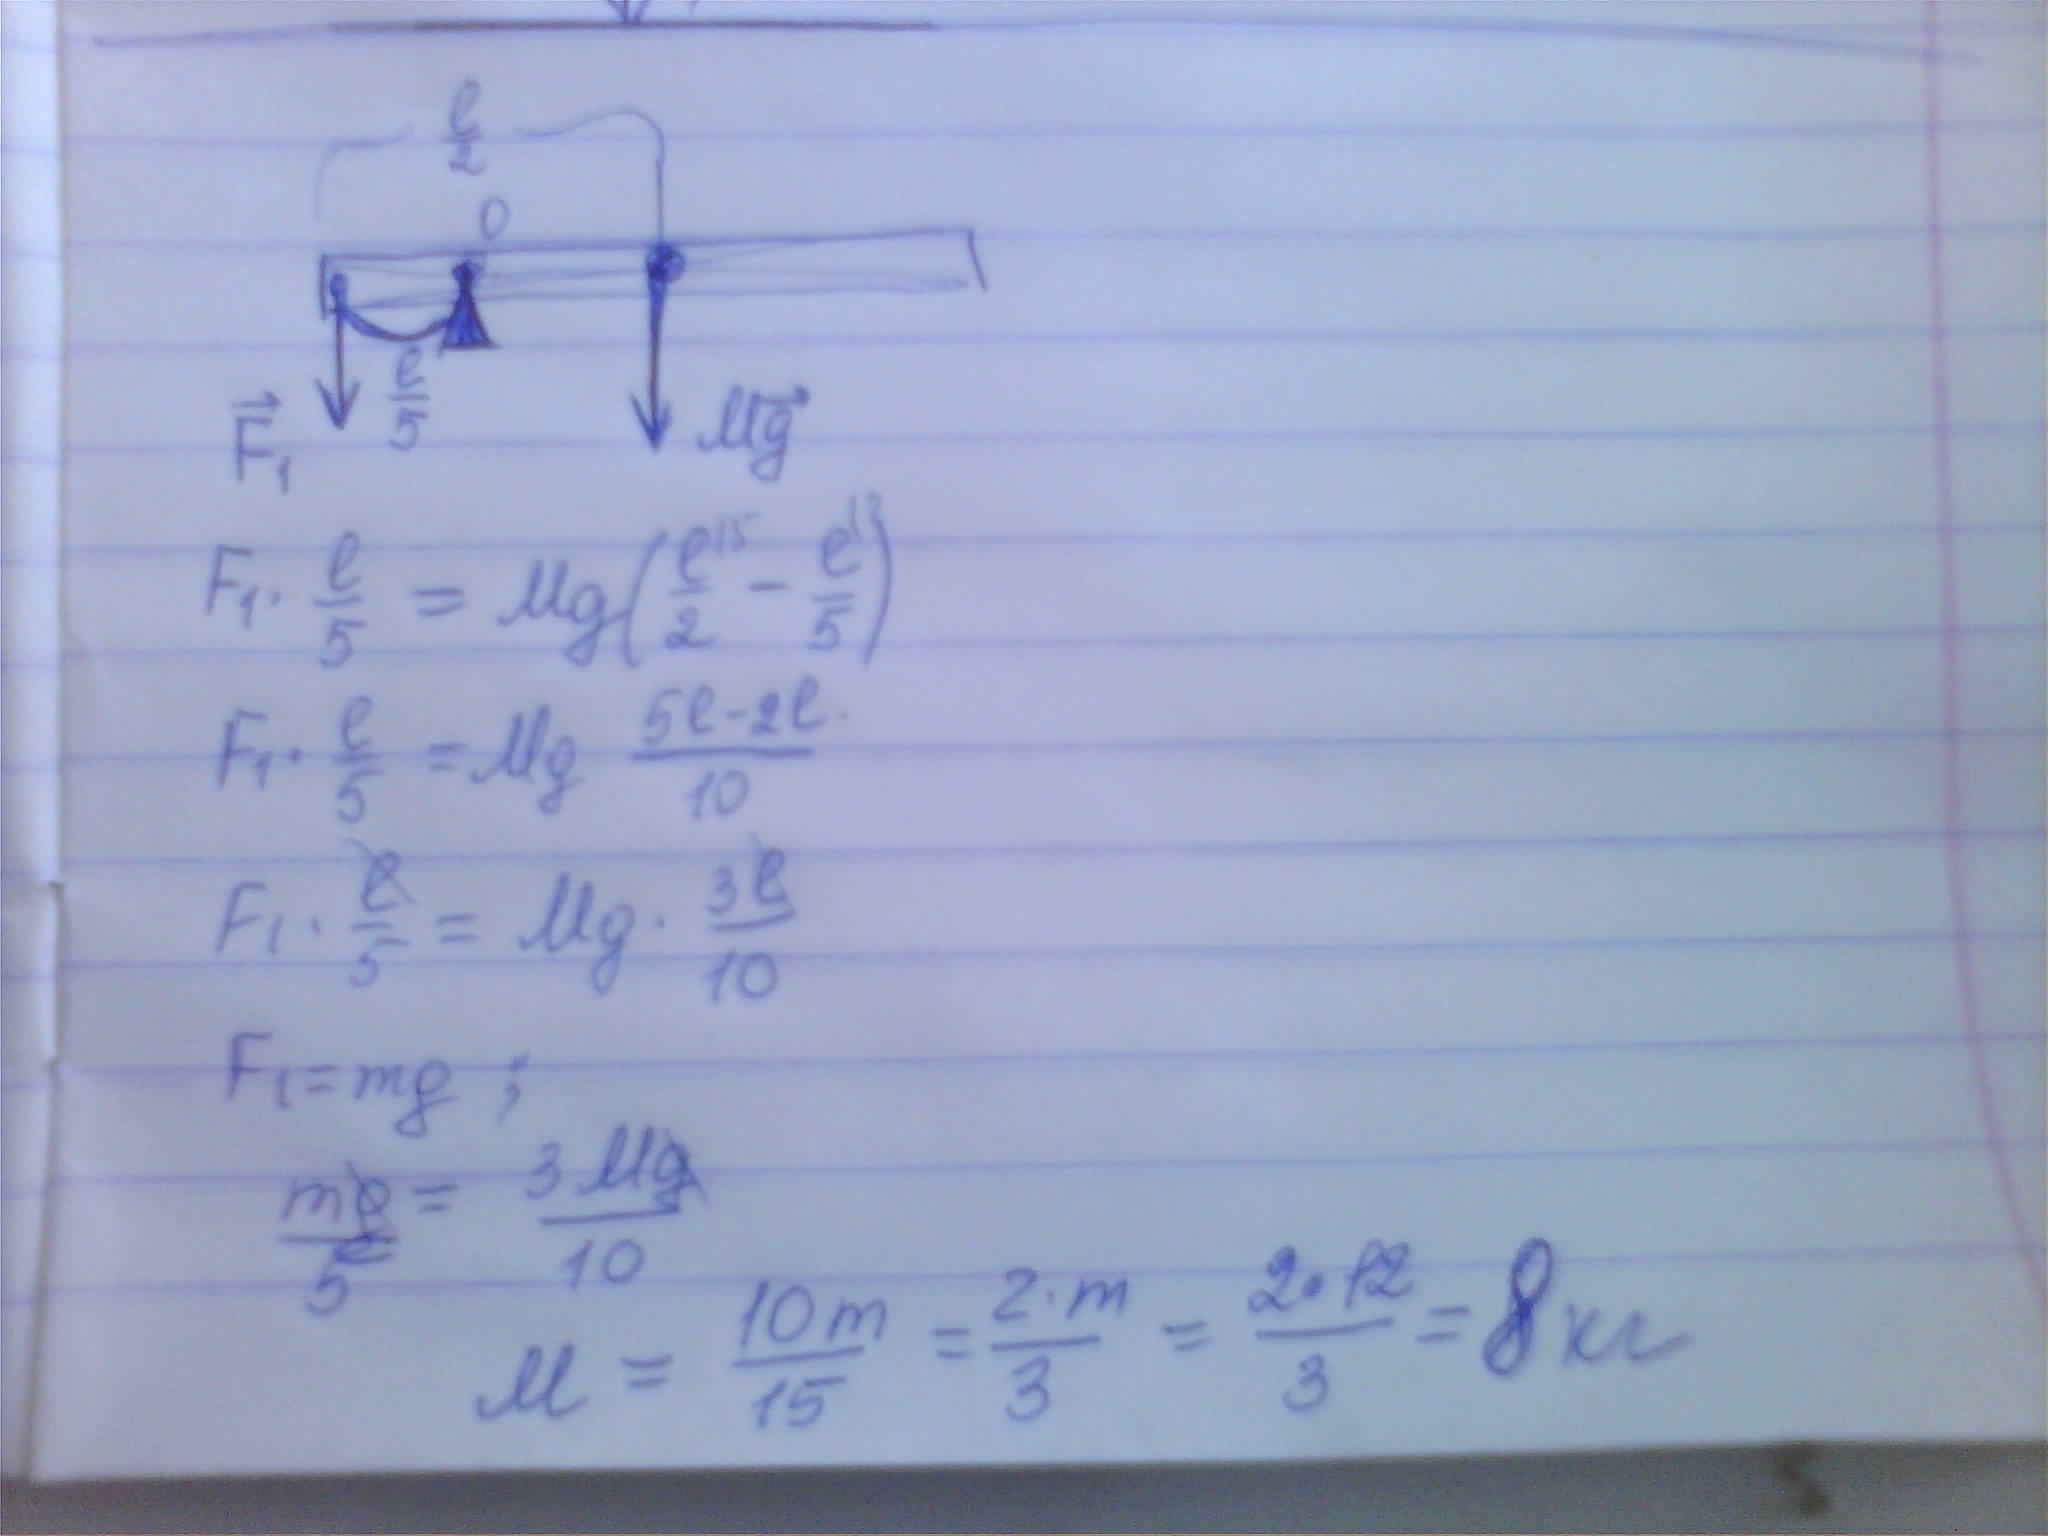 l/2
O
l/5
F₁ Mg
F₁· l/5 = Mg(l/2 - l/5)
F₁· l/5 = Mg (5l-2l)/10
F₁· l/5 = Mg· 3l/10
F₁=mg ;
mg/5 = 3Mg/10
M = 10m/15 = 2·m/3 = 2·12/3 = 8 кг